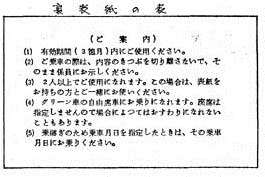 裏表紙の表
(ご案内)
(1) 有効期間(3箇月)内にご使用ください。
(2) ご乗車の際は、内容のきっぷを切り離さないで、そ
のまま係員にお示しください。
(3) 2人以上でご使用になれます。この場合は、表紙を
お持ちの方とご一緒にお使いください。
(4) グリーン車の自由席車にお乗りになれます。座席は
指定しませんので場合によってはおすわりになれない
こともあります。
(5) 乗継ぎのため乗車月日を指定したときは、その乗車
月日にお乗りください。